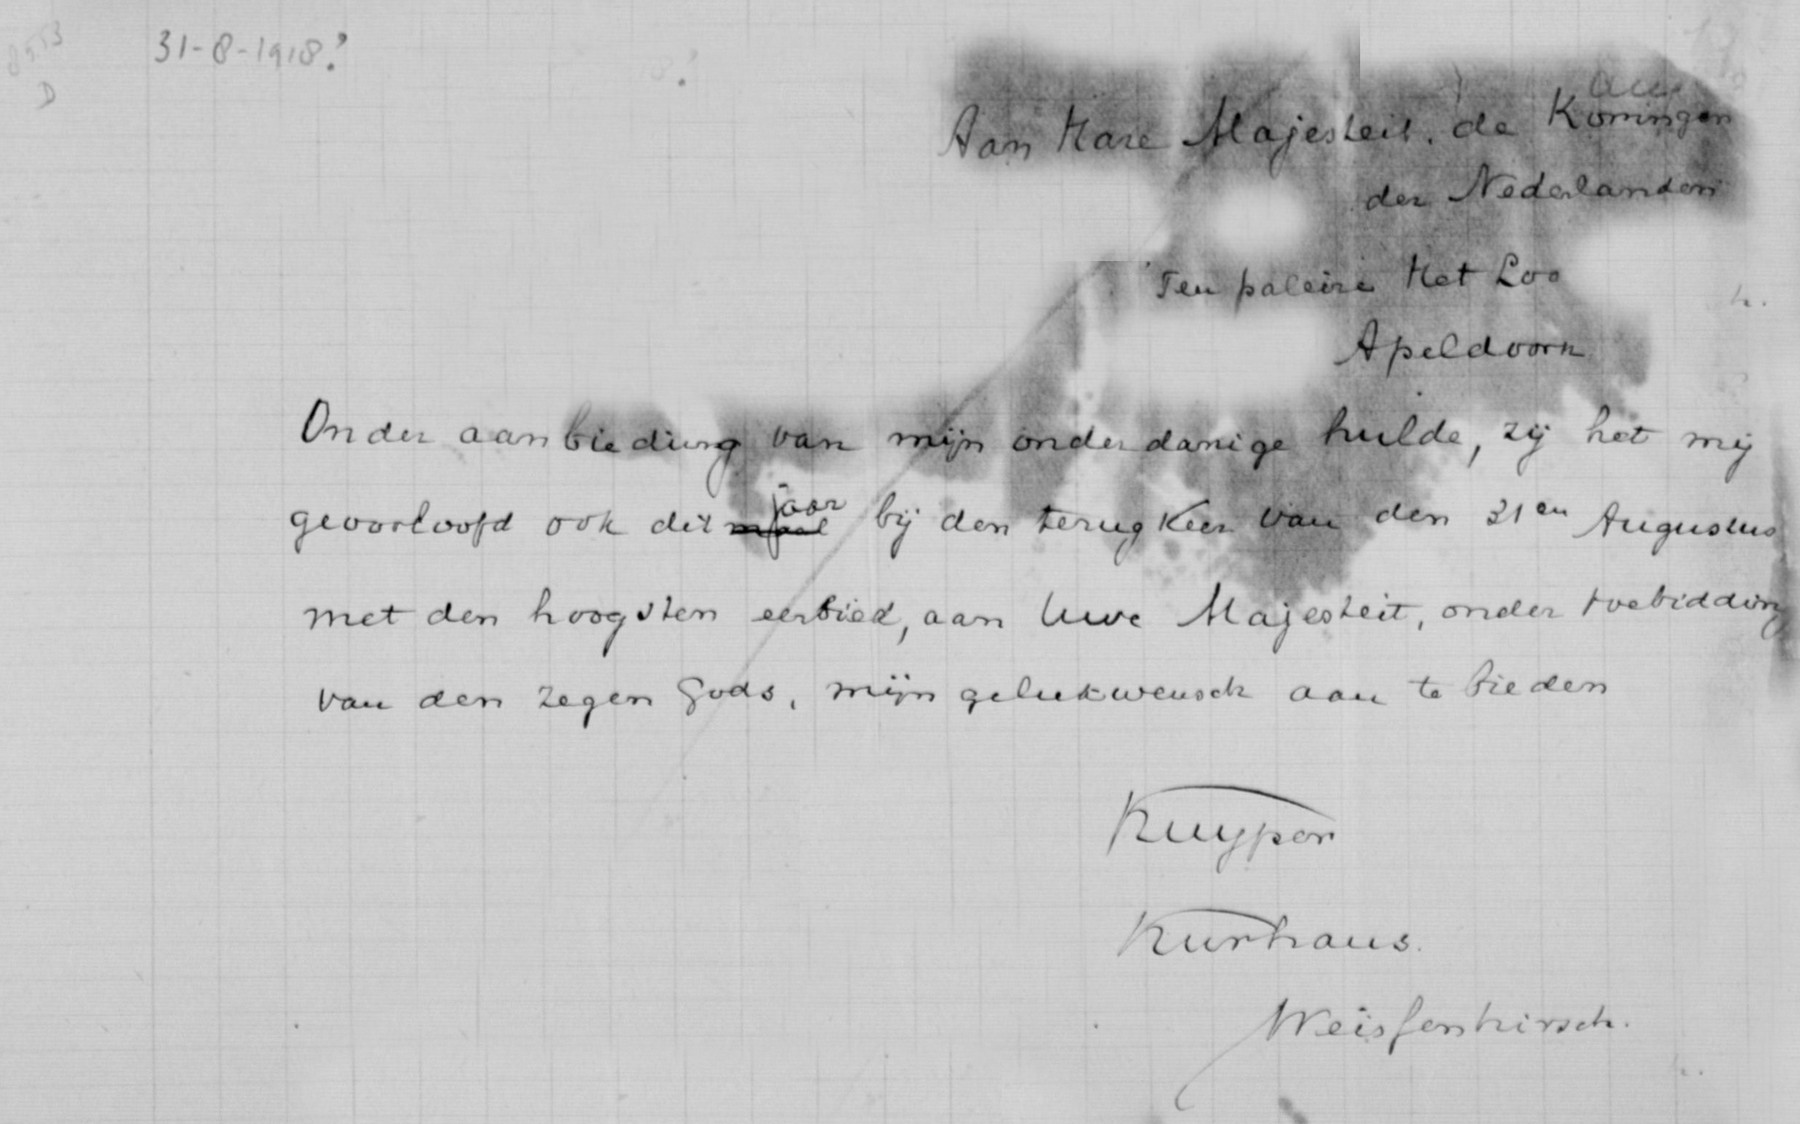 31-8-1918?
D
Aan Hare Majesteit. de Koningin
der Nederlanden
Ten paleize Het Loo
Apeldoorn
Onder aanbieding van mijn onderdanige hulde, zij het mij
geoorloofd ook dit jaar bij den terugkeer van den 31en Augustus
met den hoogsten eerbied, aan Uwe Majesteit, onder toebidding
van den zegen Gods, mijn gelukwensch aan te bieden
Kuyper
Kurhaus.
Weisserhirsch.